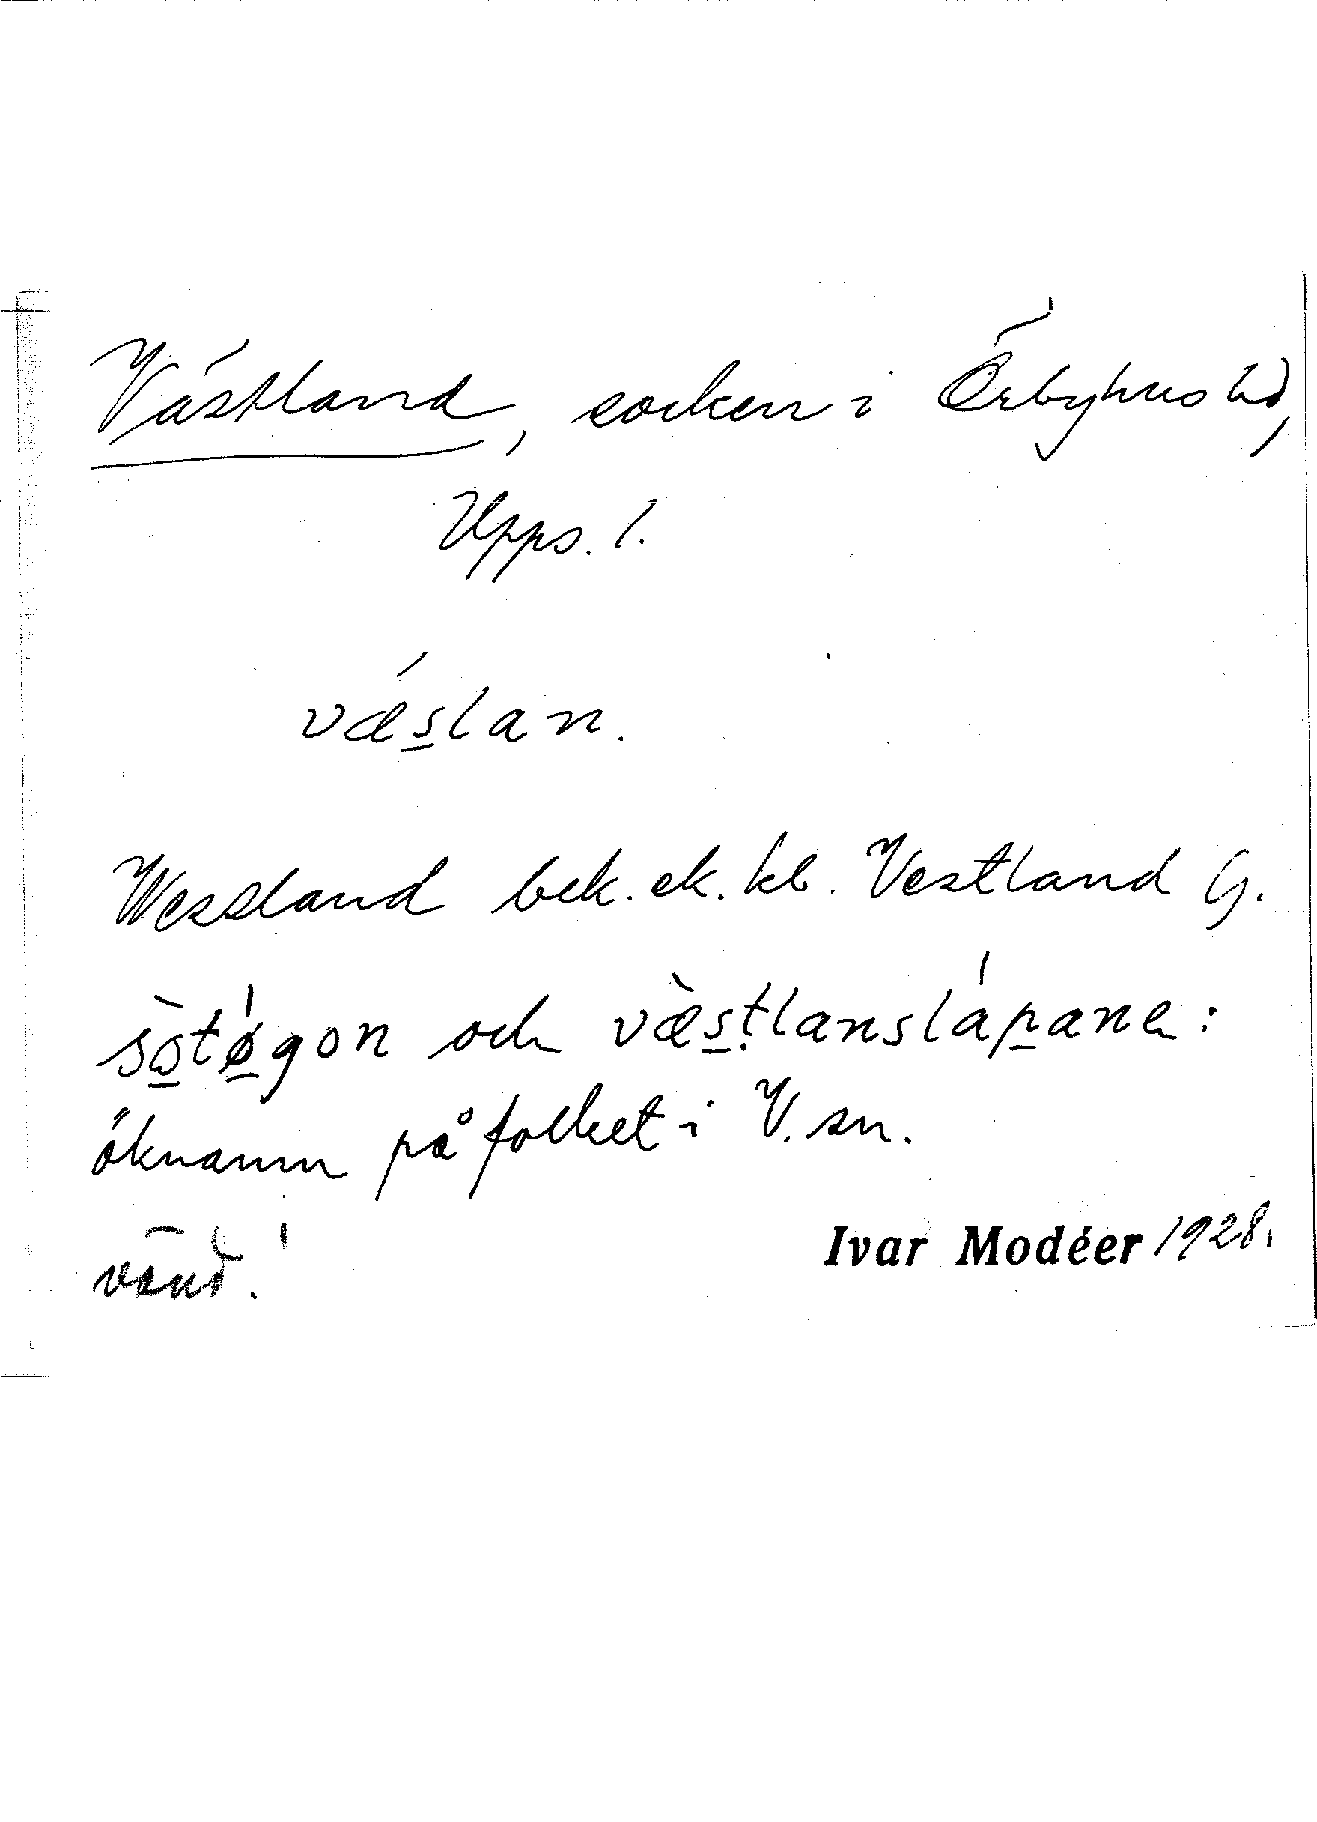 Västland, socken i Örbyhus hd,
Upps. l.
vǽs̲lan.
Wessland bek. ek. kb. Vestland G.
sὼ̲tǿ̲gon och væ̀s̲tlanslάp̲ane:
öknamn på folket i V. sn.
vänd!
Ivar Modéer 1928.